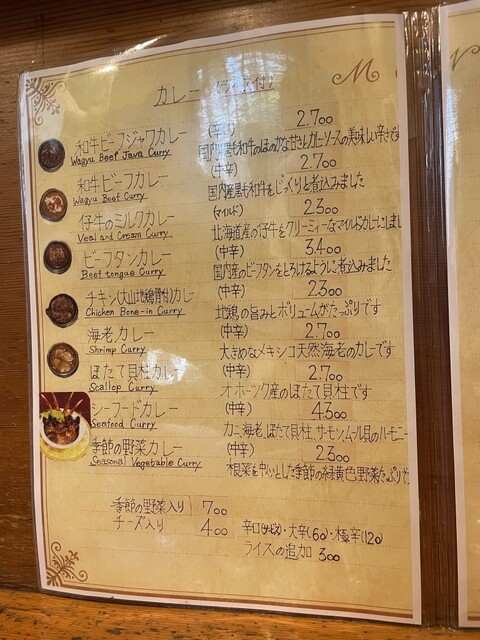 M
カレー (ライス付)
和牛ビーフジャワカレー (辛口) 2.700
Wagyu Beef Java Curry 国内産黒毛和牛のほのかな甘さとカレーソースの美味しい辛さです
和牛ビーフカレー (中辛) 2.700
Wagyu Beef Curry 国内産黒毛和牛をじっくりと煮込みました
仔牛のミルクカレー (マイルド) 2300
Veal and Cream Curry 北海道産の仔牛をクリーミィーなマイルドカレーにしまし
ビーフタンカレー (中辛) 3.400
Beef tongue Curry 国内産のビーフタンをとろけるように煮込みました
チキン(大山地鶏骨付)カレー (中辛) 2300
Chicken Bone-in Curry 地鶏の旨みとボリュームがたっぷりです
海老カレー (中辛) 2.700
Shrimp Curry 大きめなメキシコ天然海老のカレーです
ほたて貝柱カレー (中辛) 2.700
Scallop Curry オホーツク産のほたて貝柱です
シーフードカレー (中辛) 4.300
Seafood Curry カニ、海老、ほたて貝柱、サーモン、ムール貝のハーモニー
季節の野菜カレー (中辛) 2300
Seasonal Vegetable Curry 根菜を中心とした季節の緑黄色野菜たっぷりで
季節の野菜入り 700
チーズ入り 400 辛口(サービス)・大辛(60)・極辛(120)
ライスの追加 300